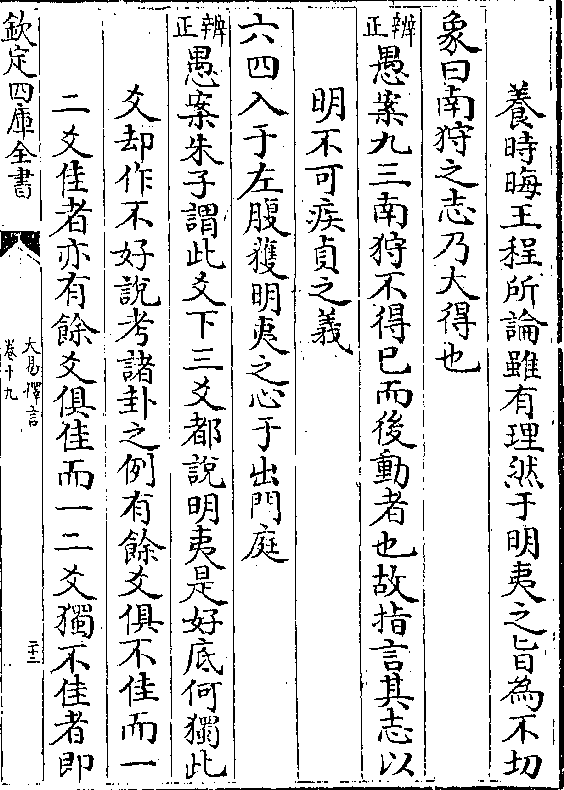 養時晦王程所論雖有理然于明夷之旨為不切
象曰南狩之志乃大得也
辨正愚案九三南狩不得已而後動者也故指言其志以
明不可疾貞之義
六四入于左腹獲明夷之心于出門庭
辨正愚案朱子謂此爻下三爻都說明夷是好底何獨此
爻却作不好說考諸卦之例有餘爻俱不佳而一
二爻佳者亦有餘爻俱佳而一二爻獨不佳者即
欽定四庫全書
大易擇言
卷十九
二十三